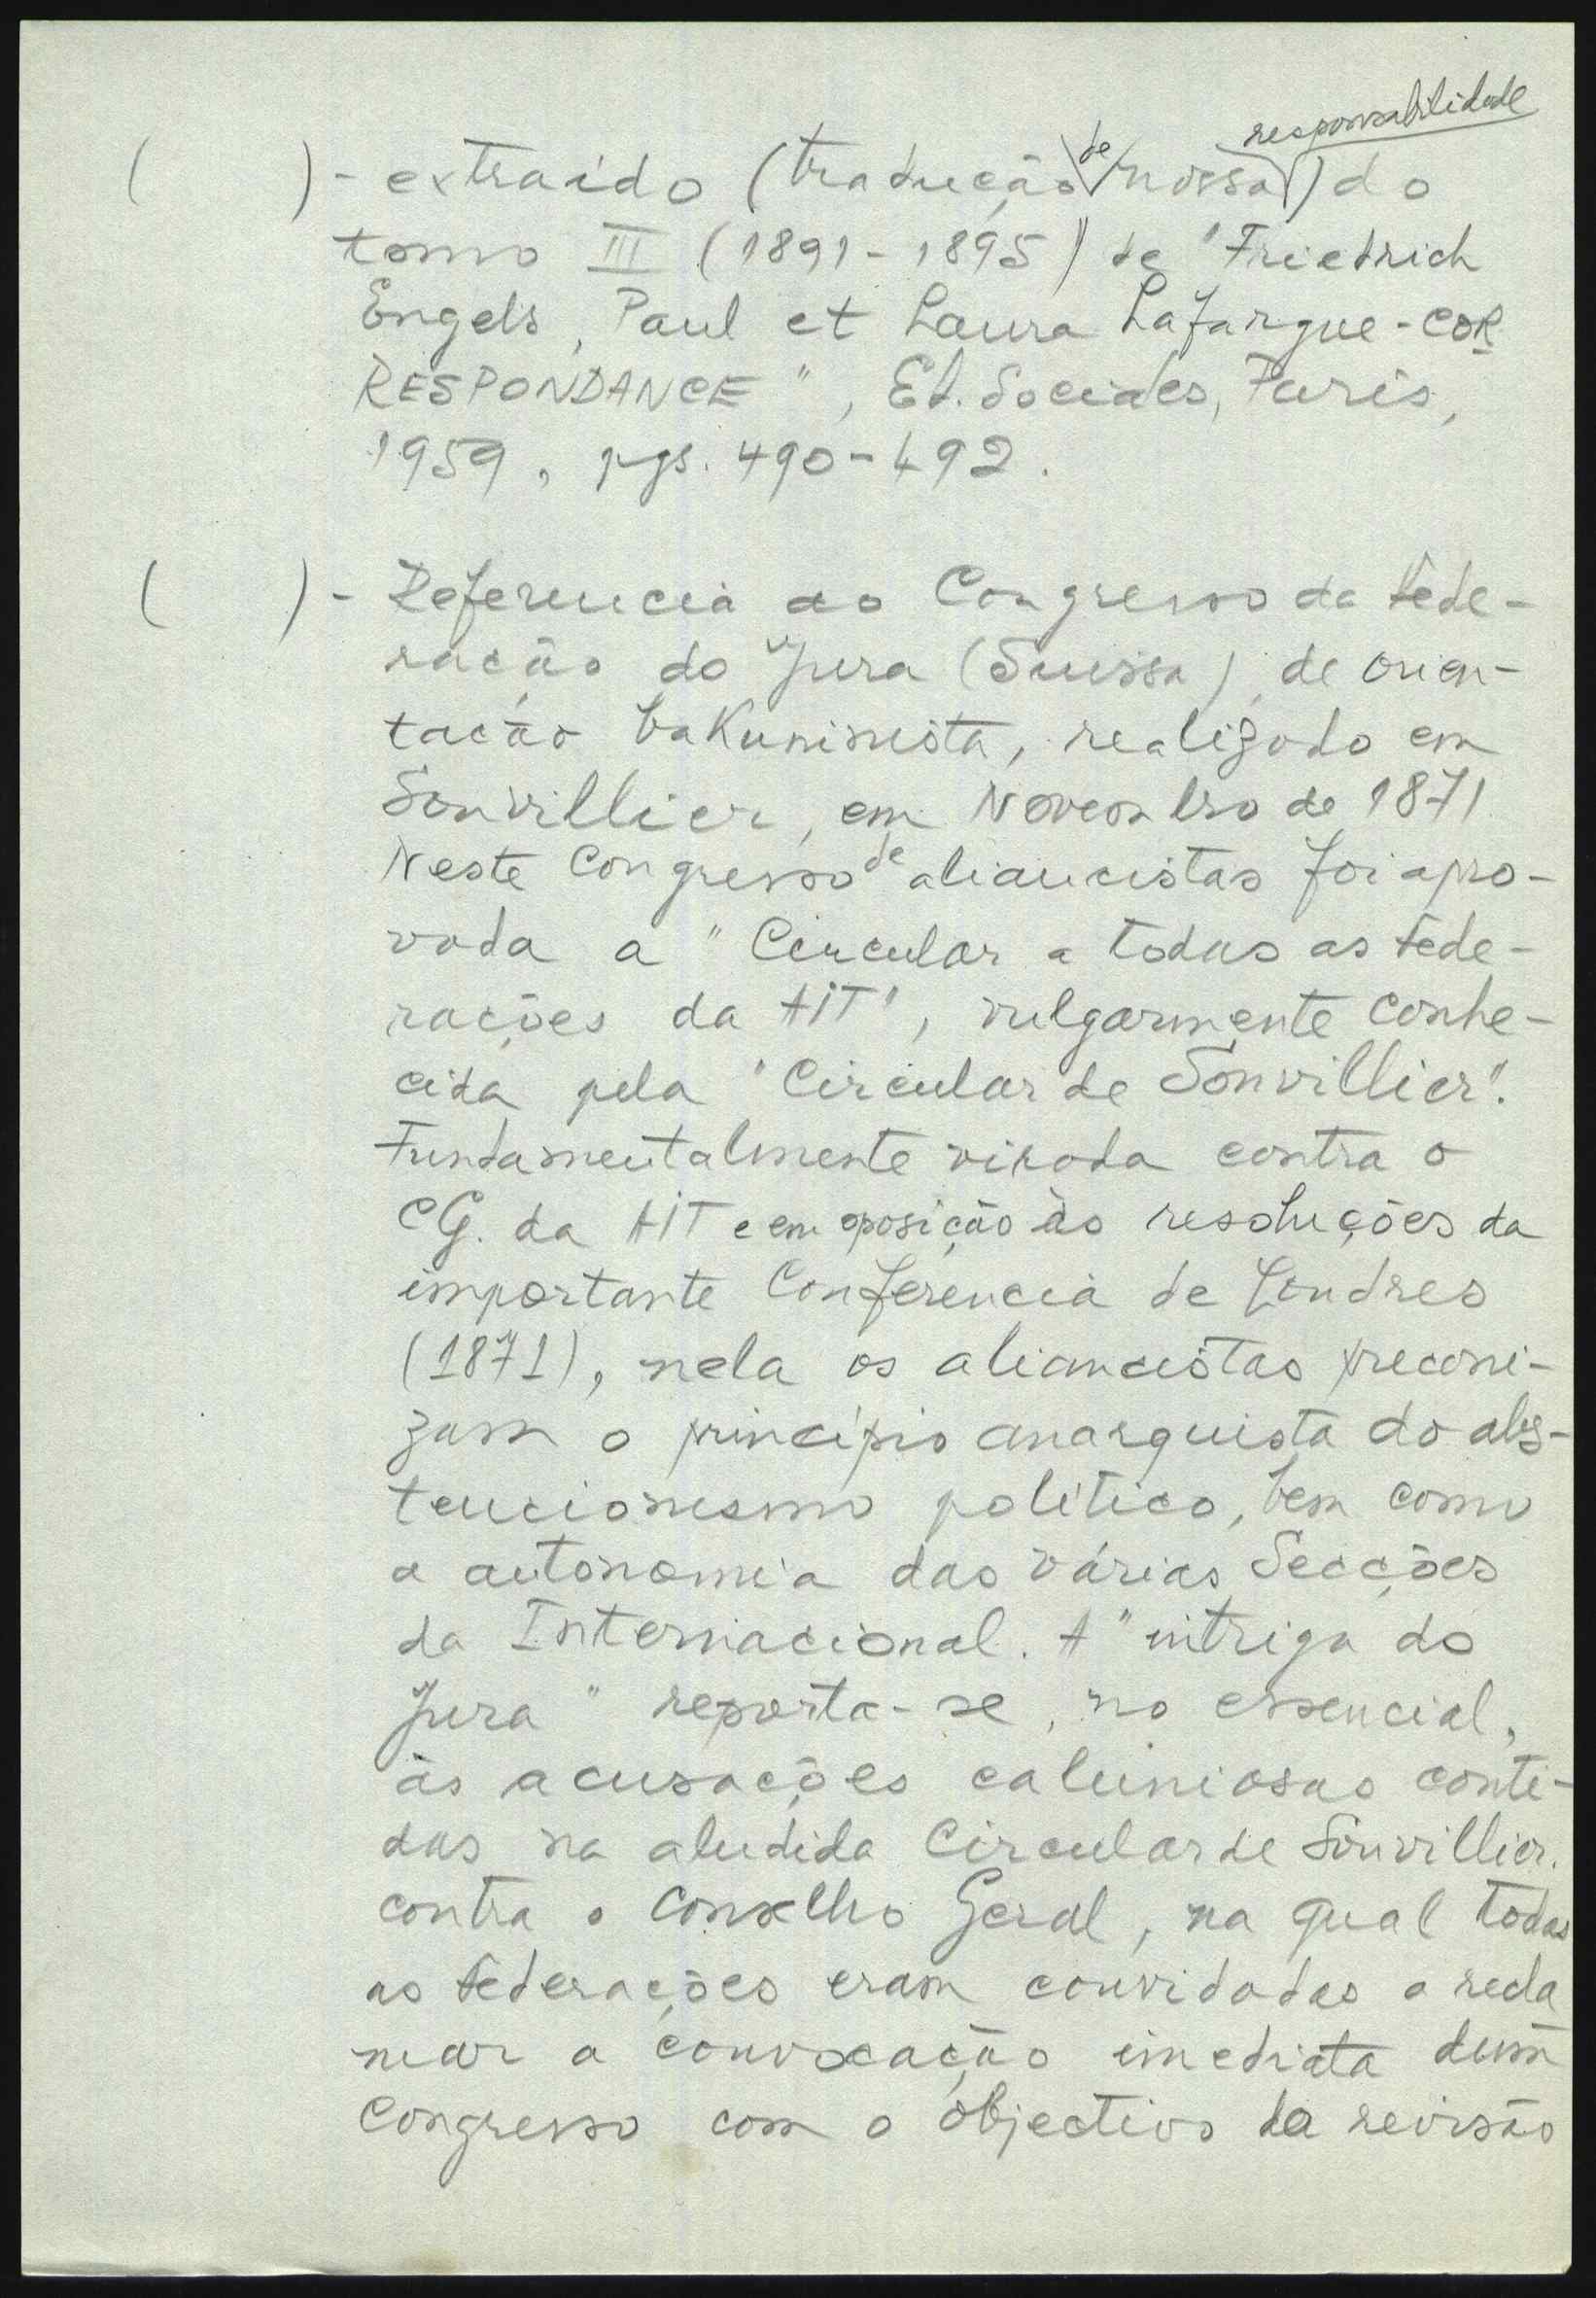 responsabilidade
( ) - extraído (tradução de nossa) do
tomo III (1891-1895) de "Friedrich
Engels, Paul et Laura Lafargue - COR
RESPONDANCE", Ed. Sociales, Paris,
1959, pgs. 490-492.
( ) - Referencia ao Congresso da Fede-
ração do Jura (Suissa), de orien-
tação bakuninista, realizado em
Sonvillier, em Novembro de 1871.
Neste Congresso de aliancistas foi apro-
vada a "Circular a todas as Fede-
rações da AIT", vulgarmente conhe-
cida pela "Circular de Sonvillier".
Fundamentalmente virada contra o
CG. da AIT e em oposição às resoluções da
importante Conferencia de Londres
(1871), nela os aliancistas preconi-
zam o princípio anarquista do abs-
tencionismo politico, bem como
a autonomia das várias Secções
da Internacional. A "intriga do
Jura" reporta-se, no essencial,
às acusações caluniosas conti-
das na aludida Circular de Sonvillier.
contra o Conselho Geral, na qual todas
as Federações eram convidadas a recla
mar a convocação imediata dum
Congresso com o objectivo da revisão